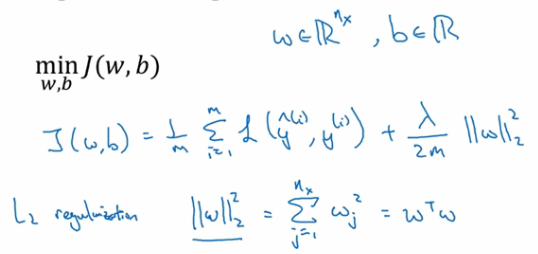 w ∈ ℝ^{n_x}, b ∈ ℝ
min_{w,b} J(w, b)
J(w,b) = 1/m ∑_{i=1}^{m} L(ŷ^{(i)}, y^{(i)}) + λ/2m ||w||_2^2
L_2 regularization ||w||_2^2 = ∑_{j=1}^{n_x} w_j^2 = w^T w